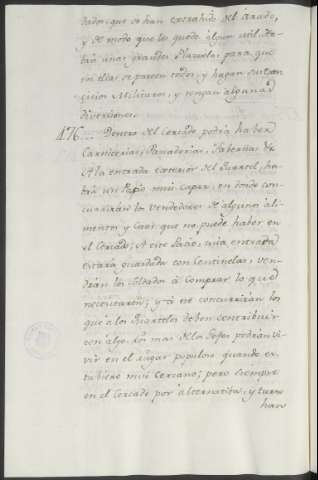 dados, que se han extrahido del Arado,
y de modo que les quede algun util. Ha-
brá unas grandes Plazuelas, para que
en ellas se paseen todos, y hagan sus Exer-
cicios Militares, y tengan algunas
diversiones.
476... Dentro del Cercado podrá haber
Carnicerias, Panaderias, Tabernas &c
A la entrada exterior del Quartel, ha-
brá un Patio mui capaz, en donde con-
currirán los Vendedores de algunos ali-
mentos y Cosas que no puede haber en
el Cercado; A este Patio, cuia entrada
estará guardada con Centinelas, ven-
drán los Soldados á Comprar lo que
necesitaren; y á él concurrirán los
que a los Quarteles deben contribuir
con algo. Los mas de los Gefes podrán vi-
vir en el Lugar populoso quando es-
tubiere mui Cercano; pero siempre
en el Cercado por alternativa, y turno